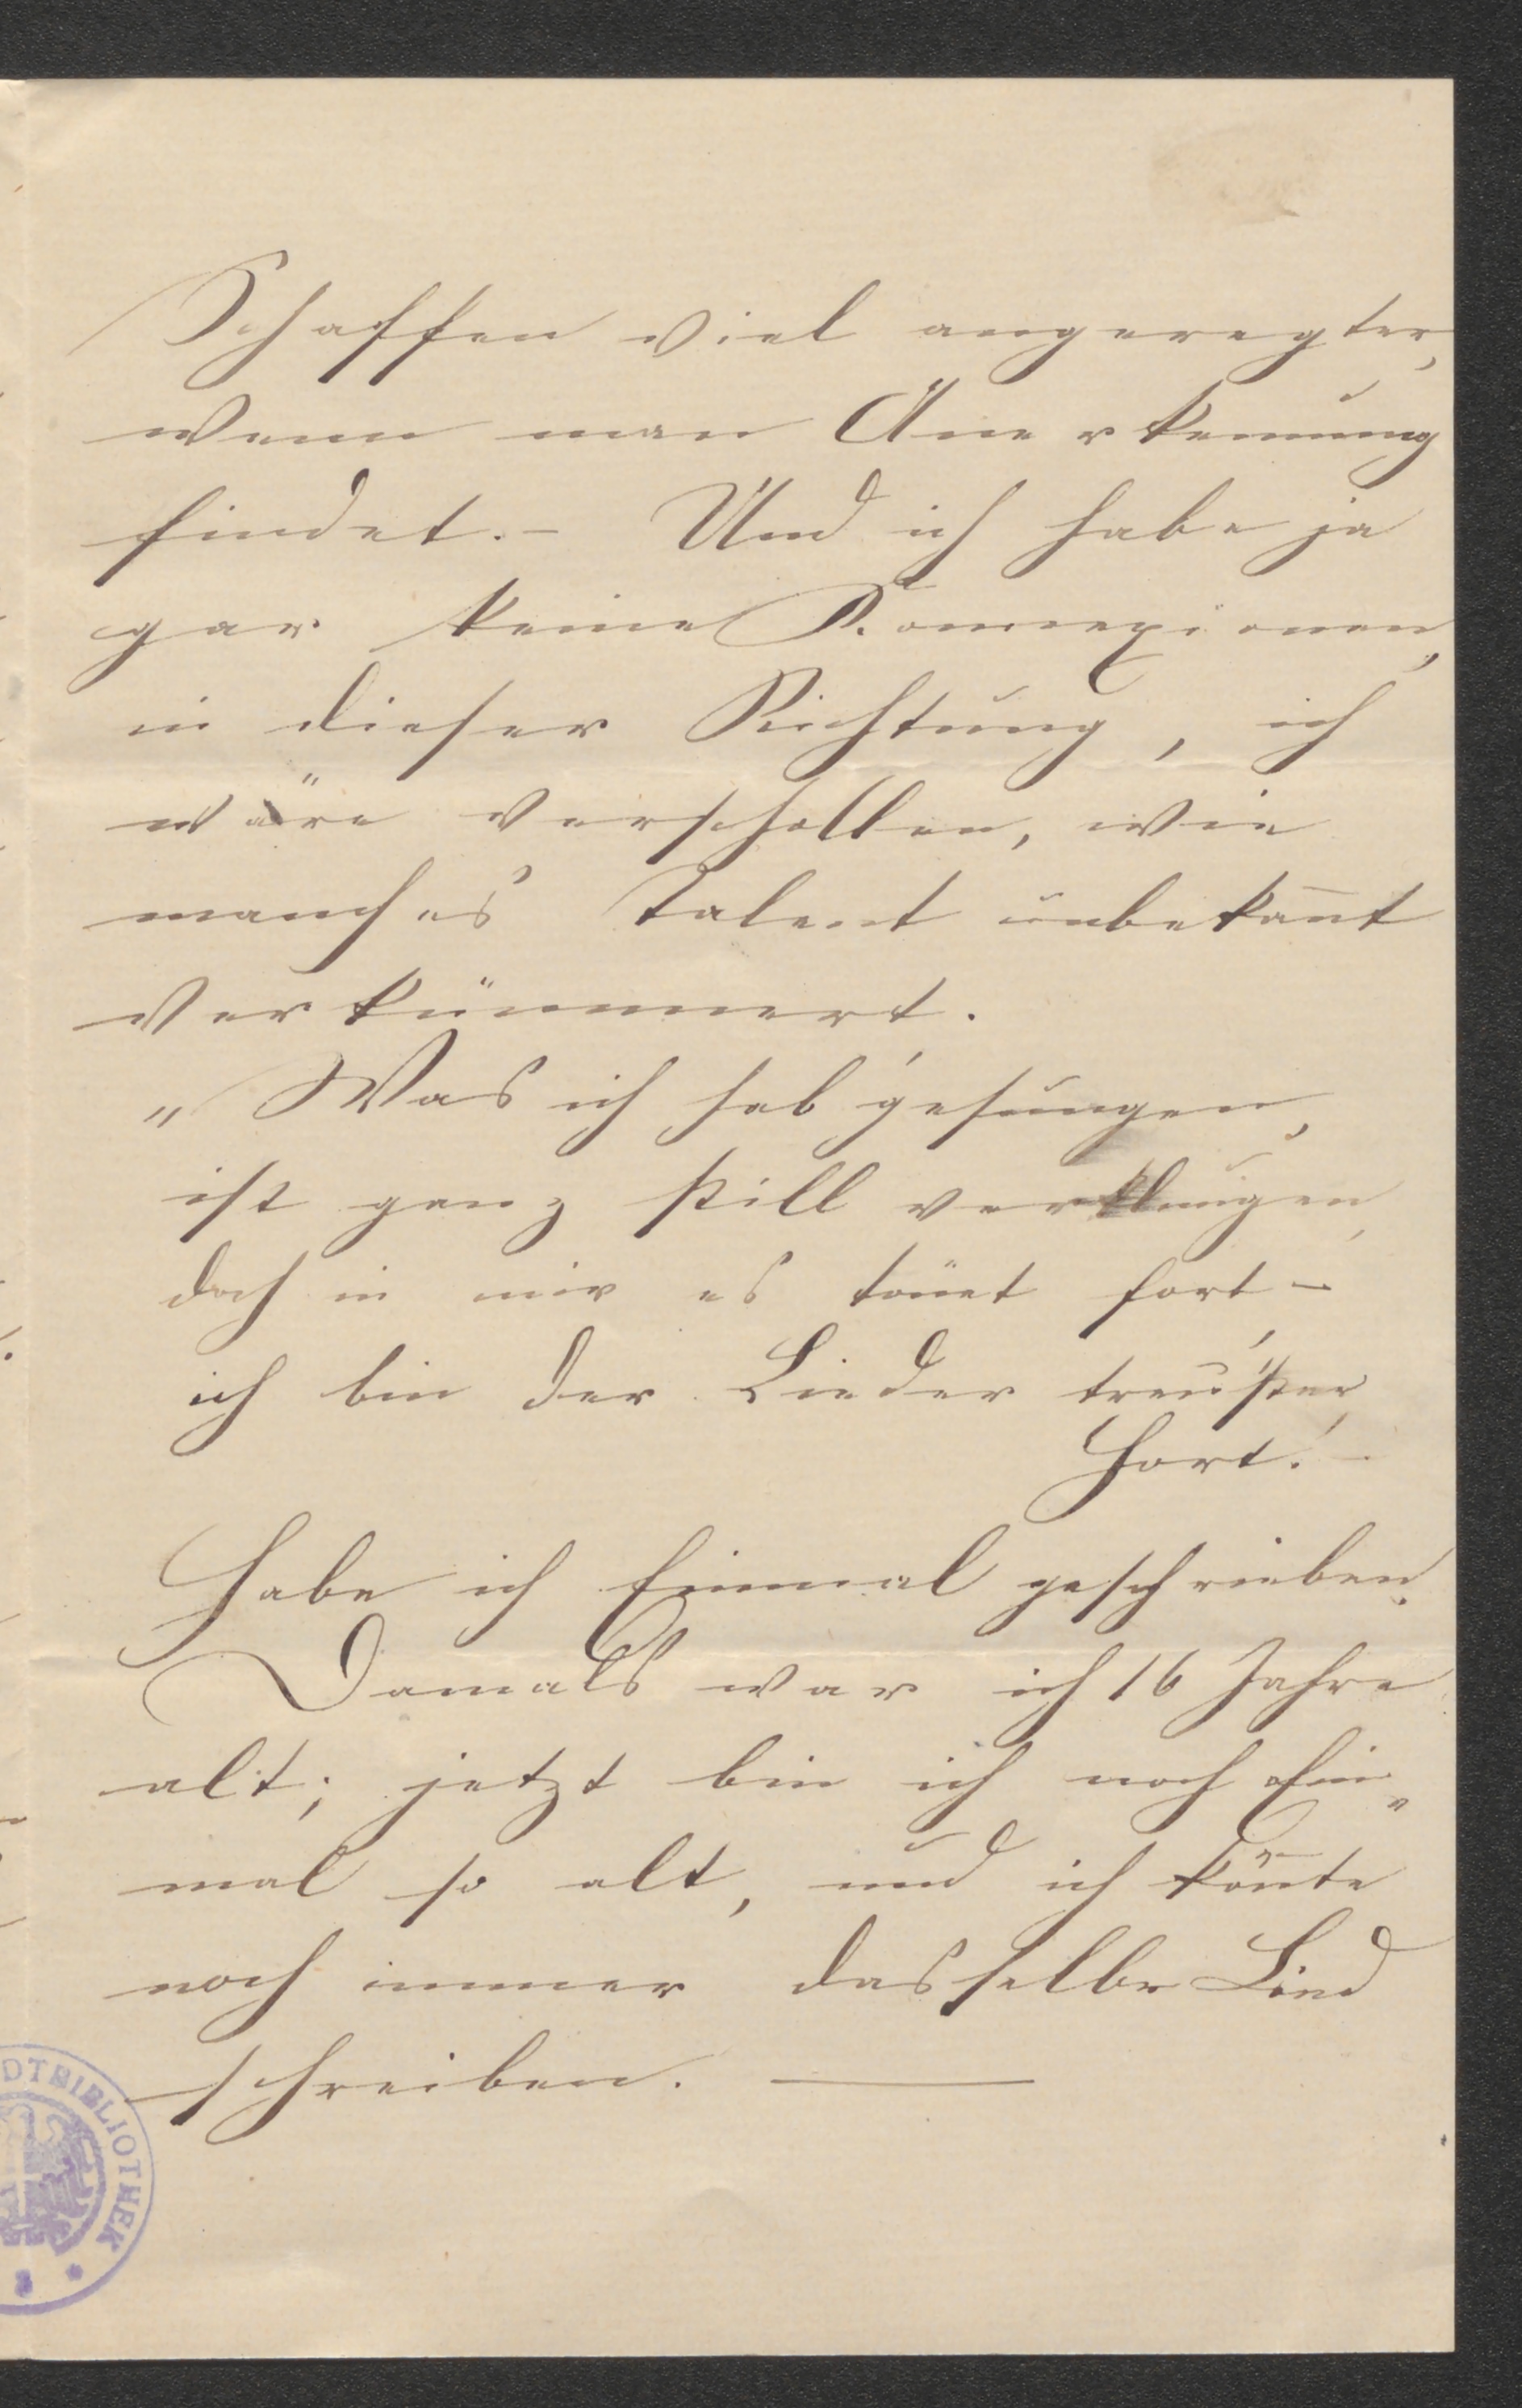 Schaffen viel angeregter,
wenn man Anerkennung
findet. – Und ich habe ja
gar keine Konnexionen,
in dieser Richtung, ich
wäre verschollen, wie
manches Talent unbekan̅t
verkümmert.
„Was ich hab' gesungen,
ist ganz still verklungen,
doch in mir es tönet fort –
ich bin der Lieder treu'ster
Hort.' –
Habe ich Einmal geschrieben.
Damals war ich 16 Jahre
alt; jetzt bin ich noch Ein„
mal so alt, und ich kön̅te
noch immer dasselbe Lied
schreiben. —
DTBIBLIOTHEK